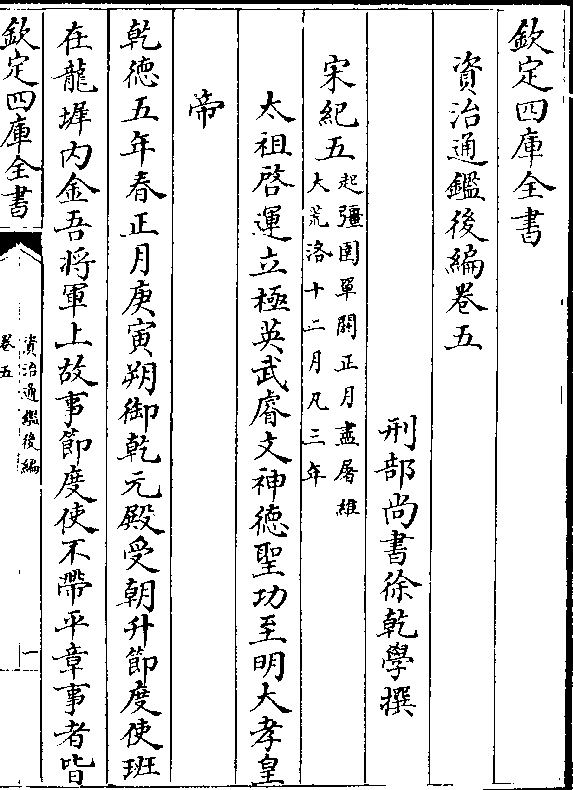 欽定四庫全書
資治通鑑後編卷五
刑部尚書徐乾學撰
宋紀五起彊圉單閼正月盡屠維
大荒落十二月凡三年
太祖啓運立極英武睿文神徳聖功至明大孝皇
帝
乾徳五年春正月庚寅朔御乾元殿受朝升節度使班
在龍墀内金吾將軍上故事節度使不帶平章事者皆
欽定四庫全書
資治通鑑後編
卷五
一